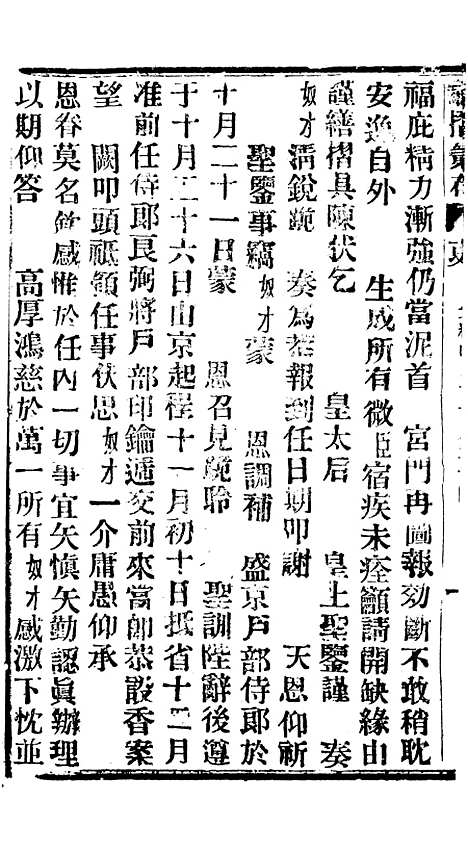 福庇精力漸強仍當泥首　宮門再圖報効斷不敢稍耽
安逸自外　生成所有微臣宿疾未痊籲請開缺緣由
謹繕摺具陳伏乞　皇太后　皇上聖鑒謹　奏
奴才清銳跪　奏為恭報到任日期叩謝　天恩仰祈
聖鑒事竊奴才蒙　恩調補　盛京戶部侍郎於
十月二十一日蒙　恩召見跪聆　聖訓陛辭後遵
于十月二十六日由京起程十一月初十日抵省十二月
准前任侍郎良弼將戶部印鑰遞交前來當卽恭設香案
望　闕叩頭祗領任事伏思奴才一介庸愚仰承
恩眷莫名鉥感惟於任內一切事宜矢慎矢勤認眞辦理
以期仰答　高厚鴻慈於萬一所有奴才感激下忱並